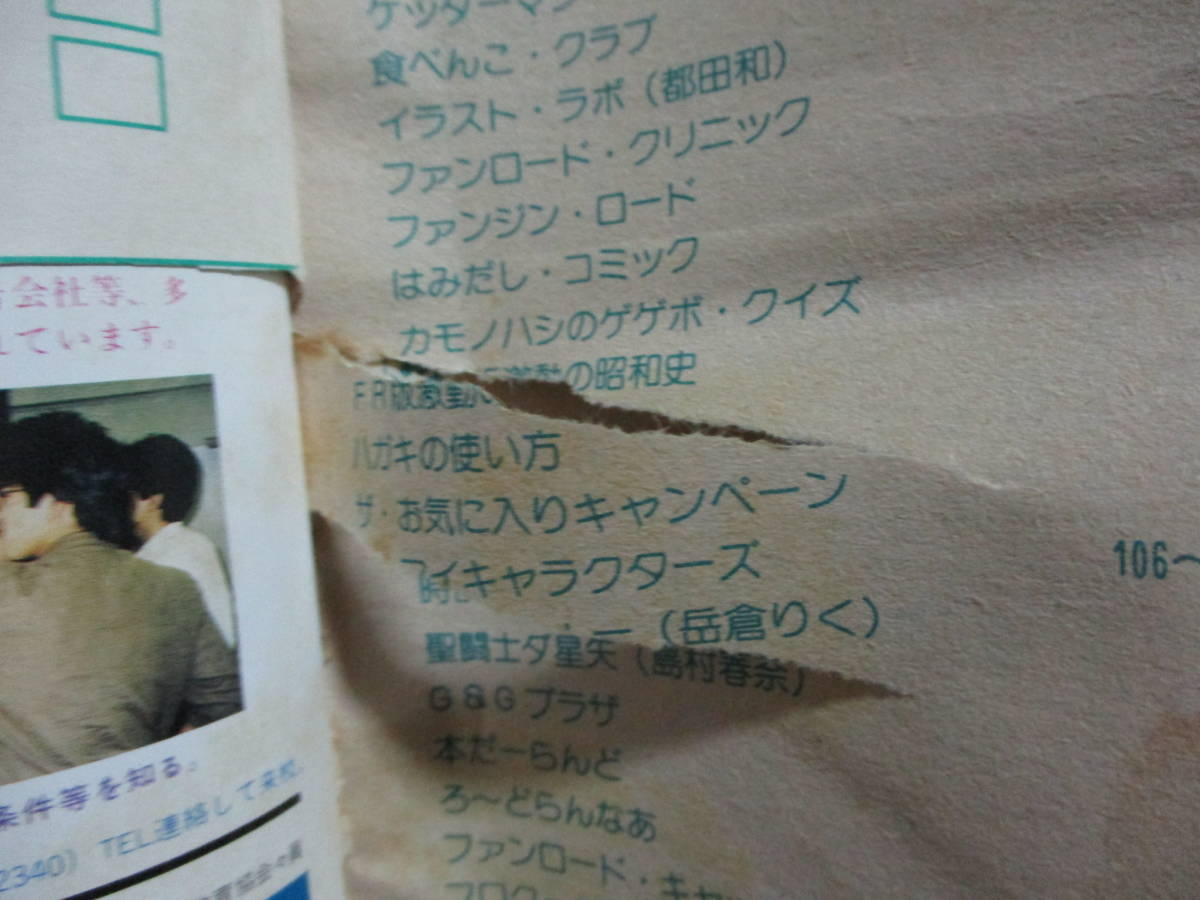 会社等、多
ています。
条件等を知る。
2340) TEL連絡して来校。
食べんこ・クラブ
イラスト・ラボ（都田和）
ファンロード・クリニック
ファンジン・ロード
はみだし・コミック
カモノハシのゲゲボ・クイズ
FR版激動の昭和史
ハガキの使い方
ザ・お気に入りキャンペーン
マイキャラクターズ
106〜
（岳倉りく）
聖闘士夕星矢（島村春奈）
G&Gプラザ
本だーらんど
ろ〜どらんなあ
ファンロード・キャ